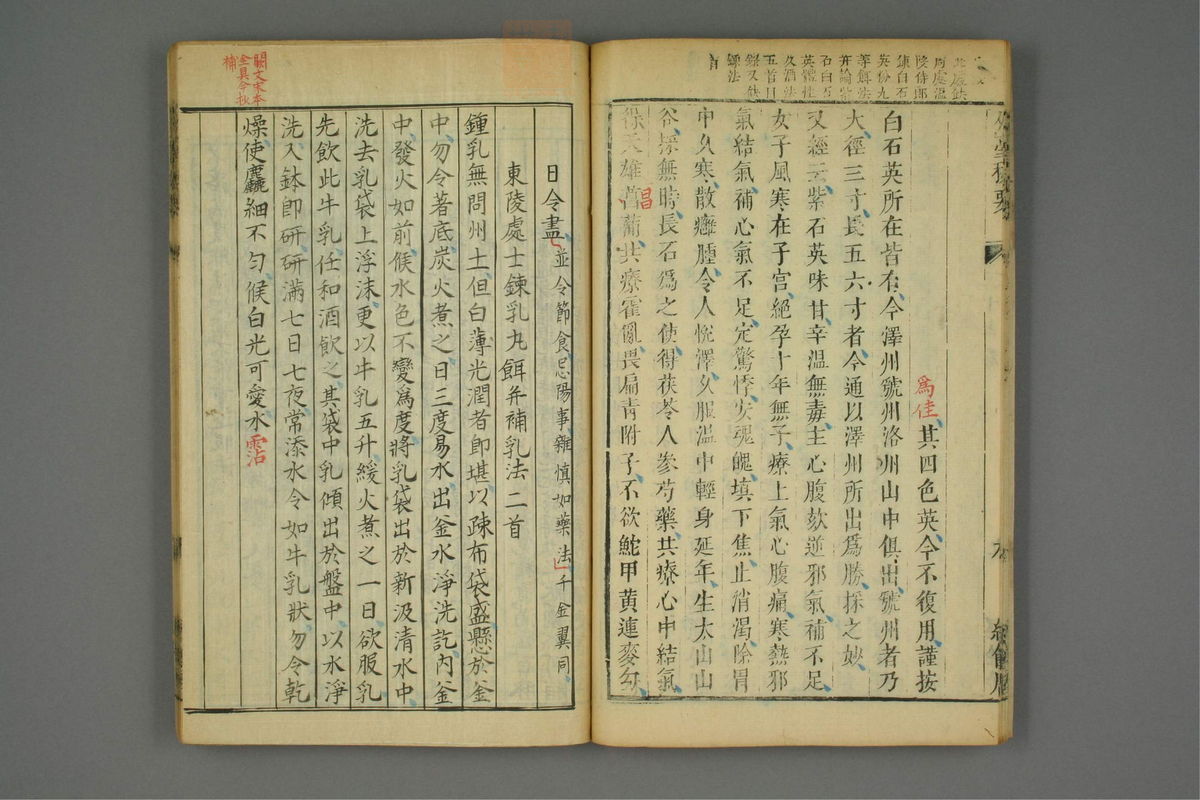 此處缺
陵侍郎
鍊白石
英粉九
等餌法
并論紫
石白石
英體性
久酒法
五首目
錄又缺
鍊法
外臺秘要
為佳
其四色英今不復用謹按
白石英所在皆有今澤州虢州洛州山中俱出虢州者乃
大徑三寸長五六寸者今通以澤州所出爲勝採之妙
又經云紫石英味甘辛溫無毒主心腹欬逆邪氣補不足
女子風寒在子宮絕孕十年無子療上氣心腹痛寒熱邪
氣結氣補心氣不足定驚悸安魂魄填下焦止消渴除胃
中久寒散癰腫令人悅澤久服溫中輕身延年生太山山
谷採無時長石爲之使得茯苓人參芍藥共療心中結氣
得天雄菖蒲共療霍亂畏扁青附子不欲鮀甲黃連麥句
昌
日令盡並令節食忌陽事雜慎如藥法千金翼同
東陵處士鍊乳丸餌并補乳法二首
鍾乳無問州土但白薄光潤者即堪以疎布袋盛懸於釜
中勿令著底炭火煮之日三度易水出釜水淨洗訖內釜
中發火如前候水色不變爲度將乳袋出於新汲清水中
洗去乳袋上浮沫更以牛乳五升緩火煮之一日欲服乳
先飲此牛乳任和酒飲之其袋中乳傾出於盤中以水淨
洗入鉢卽研研滿七日七夜常添水令如牛乳狀勿令乾
燥使麤細不勻候白光可愛水霑
闕文宋本
全具今秋
補